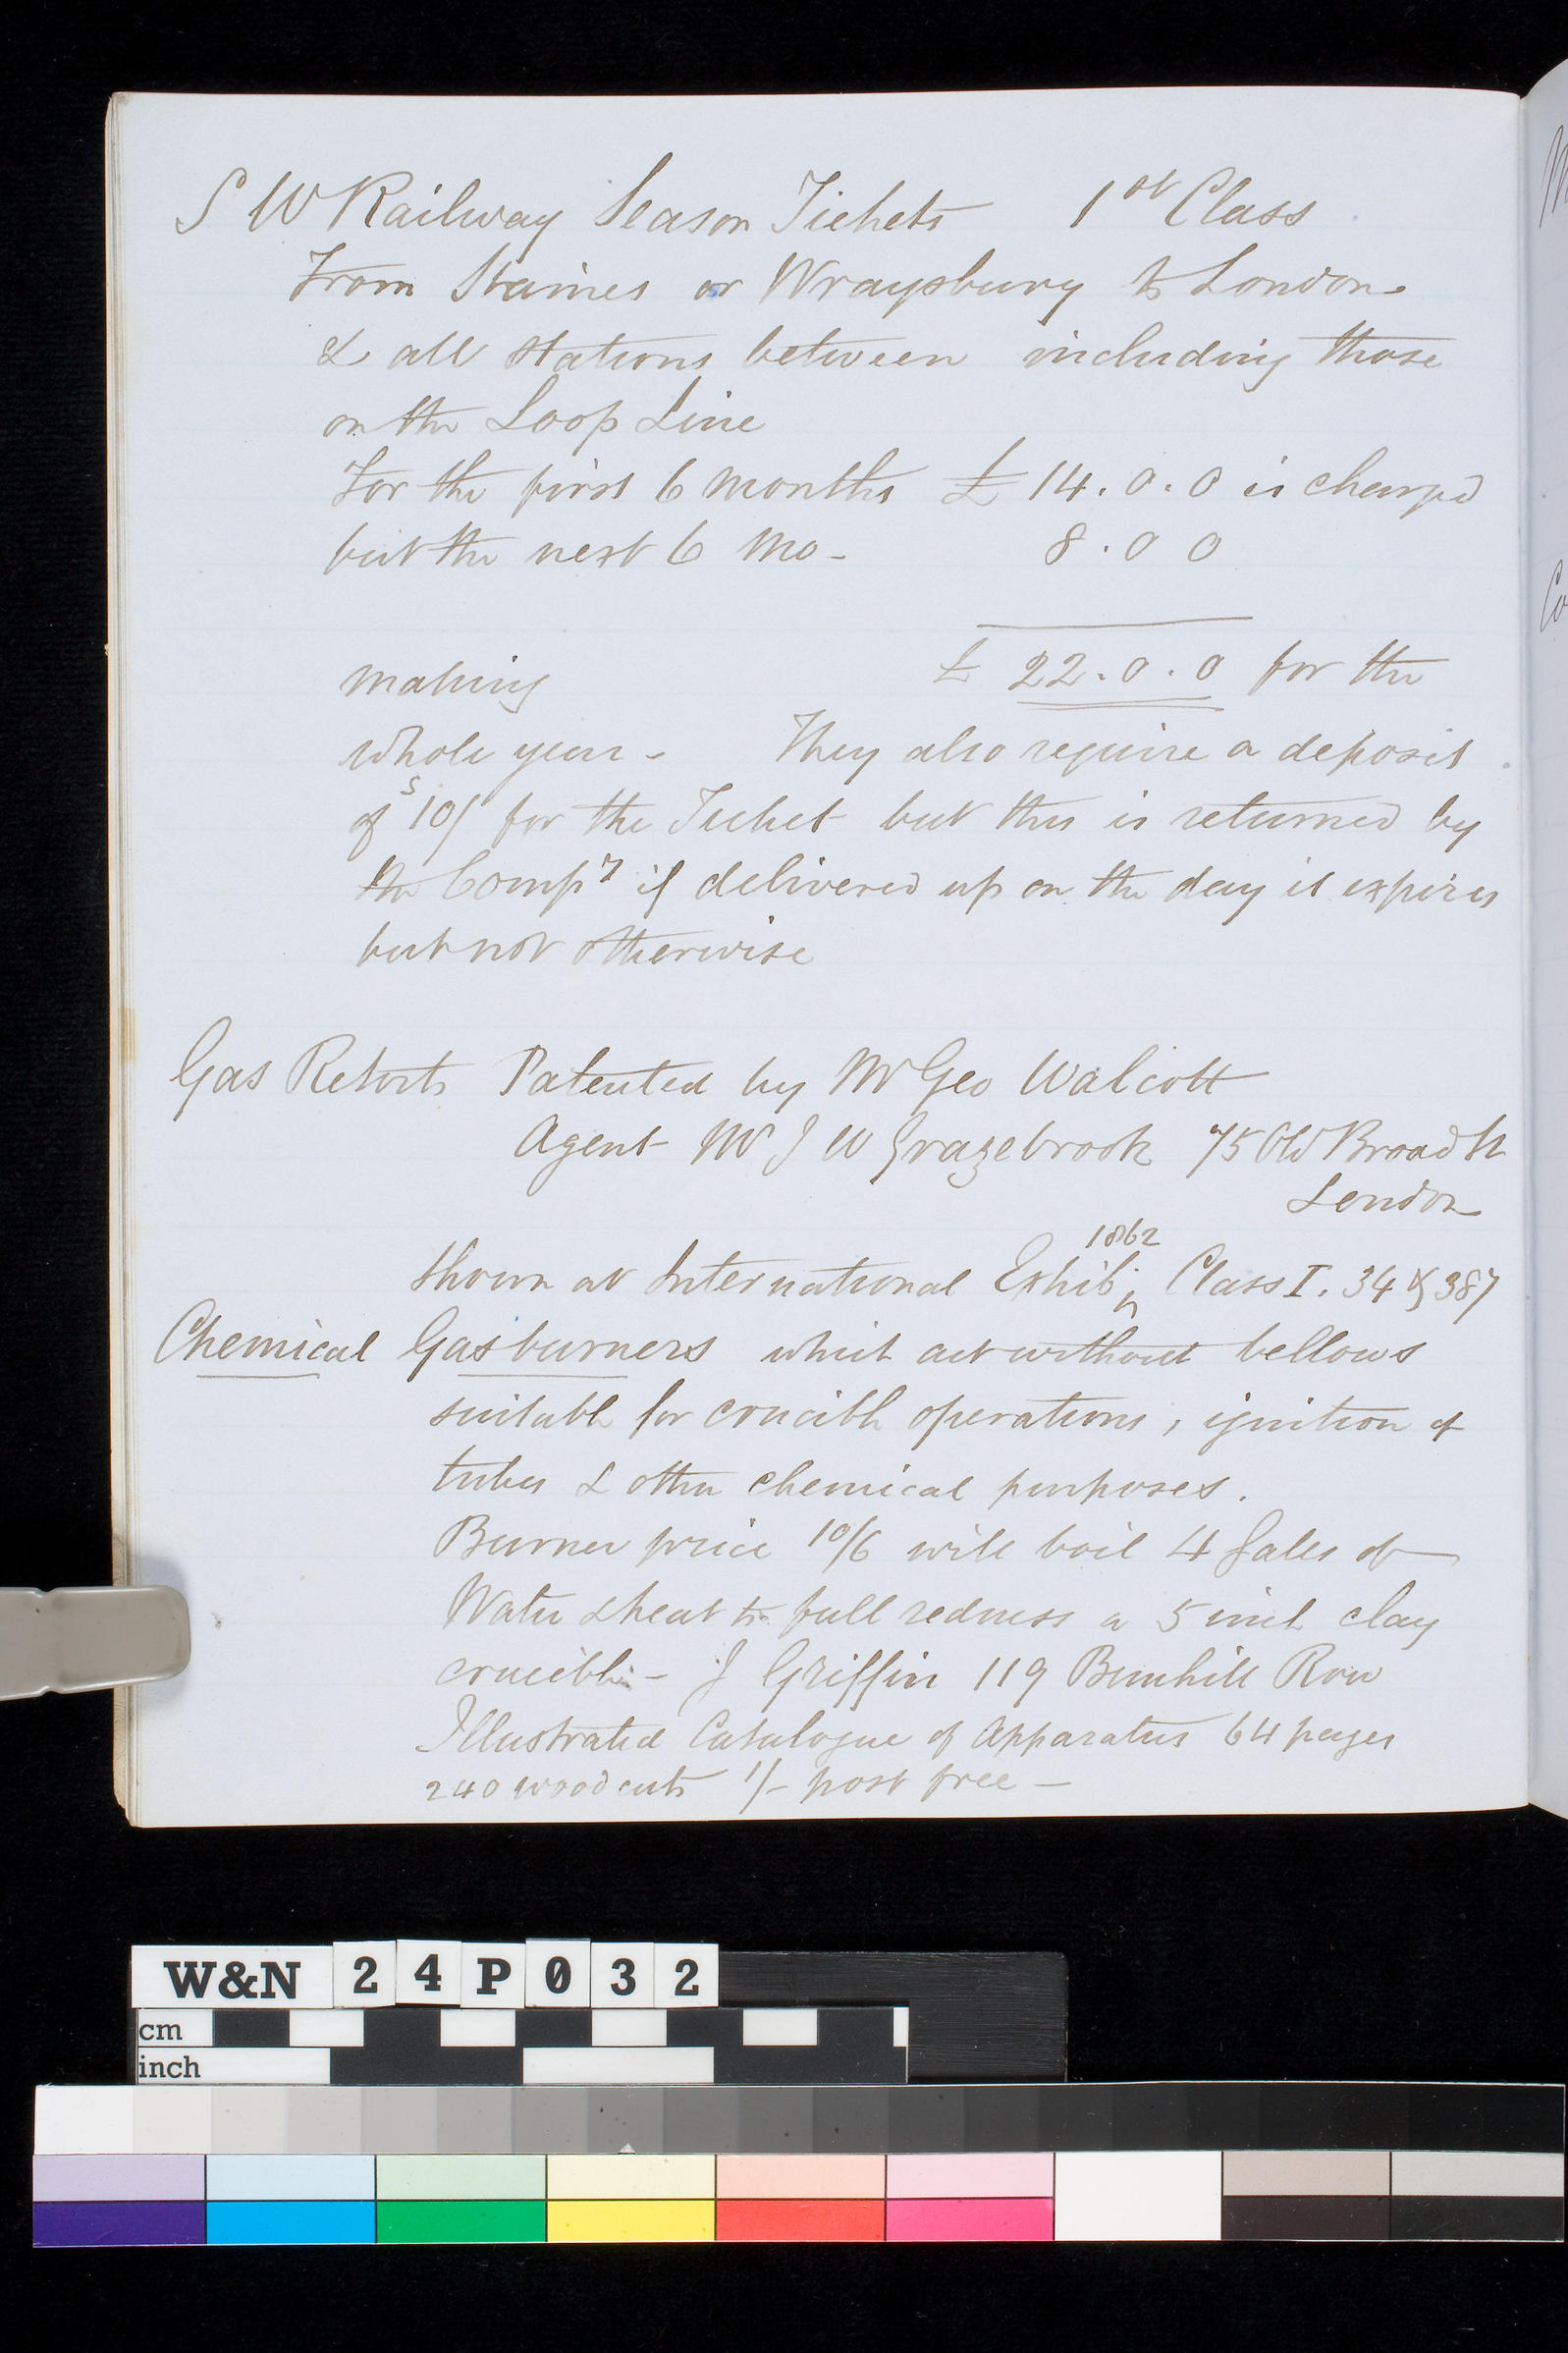 S W Railway Season Tickets 1st Class
From Staines or Wraysbury to London
& all stations between including those
on the Loop Line
For the first 6 months £ 14.0.0 is charged
but the next 6 mo- 8.0 0
making £ 22.0.0 for the
whole year - They also require a deposit
of 10/ s for the Ticket but this is returned by
the Compy if delivered up on the day it expires
but not otherwise
Gas Retorts Patented by Mr Geo Walcott
Agent Mr J W Grazebrook 75 Old Broad St
London
1862
Shown at International Exhibn Class I. 34 & 387
Chemical Gas burners which act without bellows
suitable for crucible operations, ignition of
tubes & other chemical purposes.
Burner price 10/6 will boil 4 Galls of
Water & heat to full redness a 5 inch clay
crucible - J Griffin 119 Bunhill Row
Illustrated Catalogue of Apparatus 64 pages
240 wood cuts 1/- post free -
W&N 24P032
cm
inch